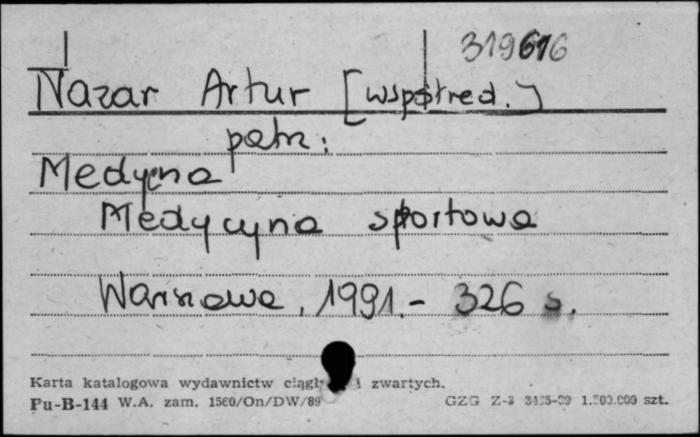 319616
Nazar Artur [wspótred.]
patrz:
Medycyna
Medycyna sportowa
Warszawa, 1991.- 326 s.
Karta katalogowa wydawnictw i zwartych.
Pu-B-144 W.A. zam. 1560/On/DW/89 GZG Z-3 1.500.000 szt.